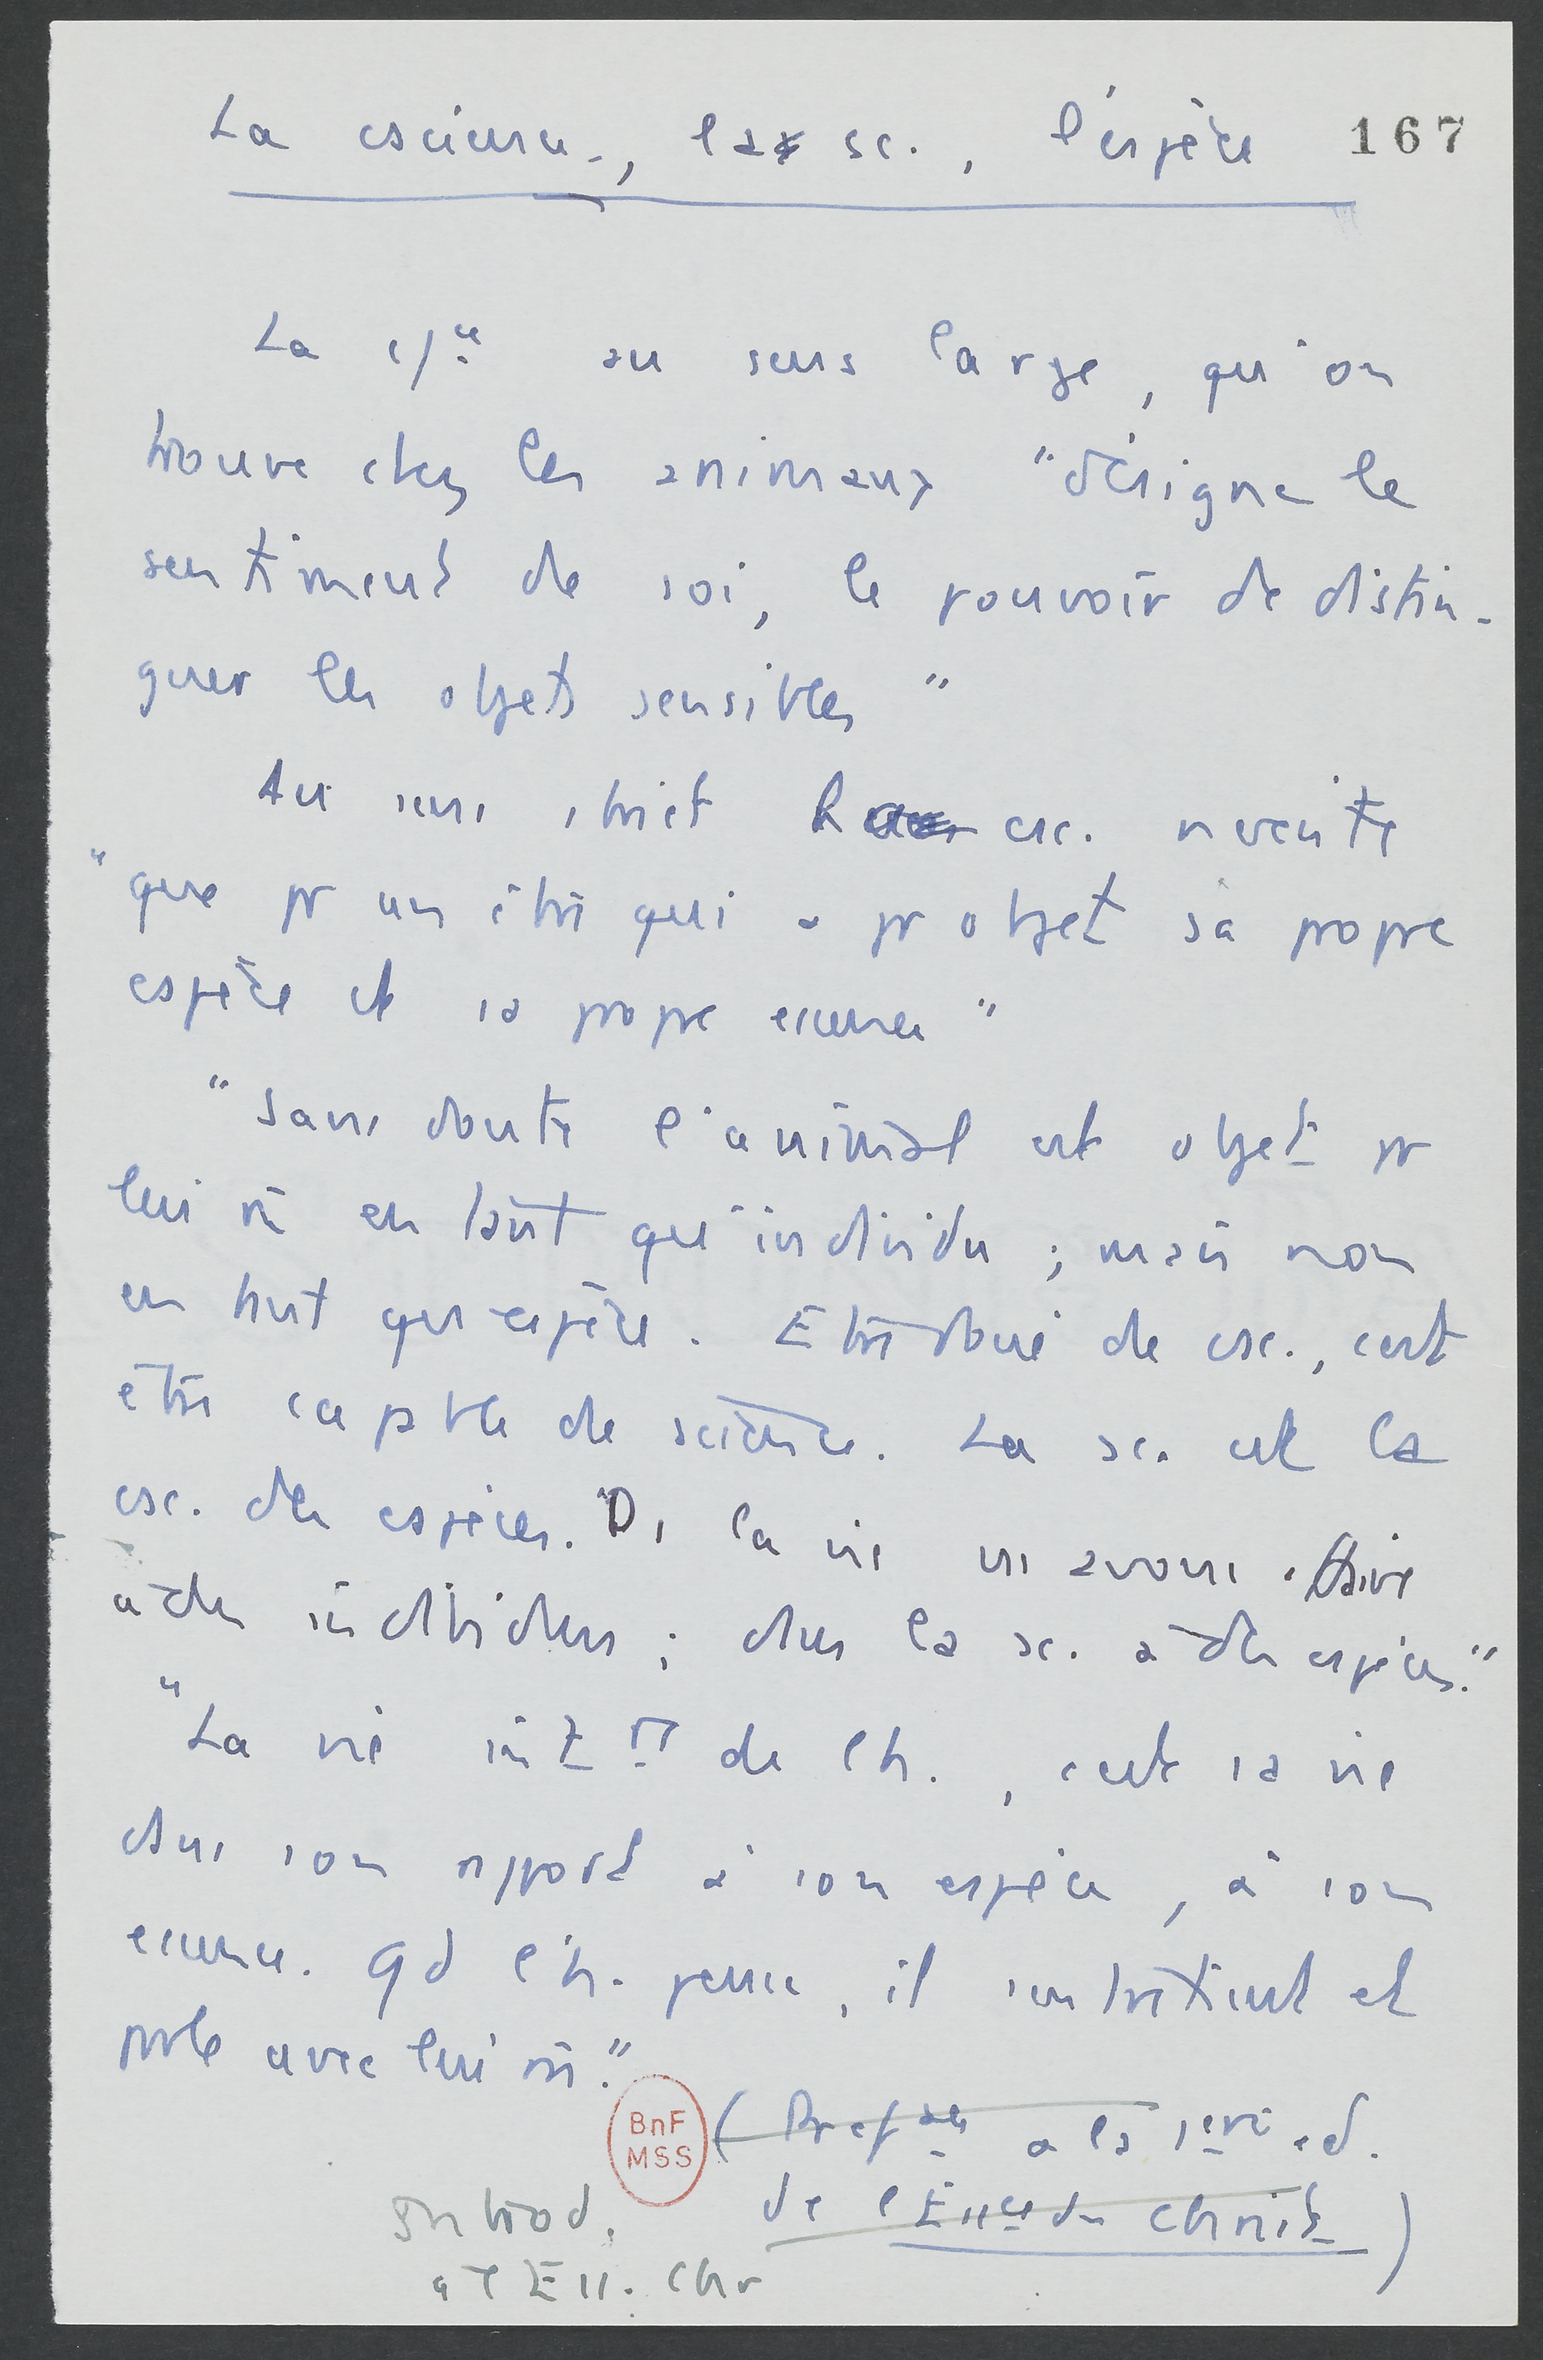 La cscience, la sc., l'espèce 167
La csce au sens large, qu'on
trouve chez les animaux "désigne le
sentiment de soi, le pouvoir de distin-
guer les objets sensibles"
Au sens strict la csc. n'existe
"que pr un être qui a pr objet sa propre
espèce et sa propre essence"
"Sans doute l'animal est objet pr
lui m̂ en tant qu'individu ; mais non
en tant qu'espèce. Être doué de csc., c'est
être capable de science. La sc. est la
csc. des espèces. Ds la vie ns avons affaire
à des individus ; dans la sc. à des espèces."
"La vie intre de l'h., c'est sa vie
dans son rapport à son espèce, à son
essence. Qd l'h. pense, il s'entretient et
parle avec lui m̂."
BnF
MSS
(Préface à la 1ère éd.
de l'Essce du Christ)
Introd.
à l'Ess. Chr